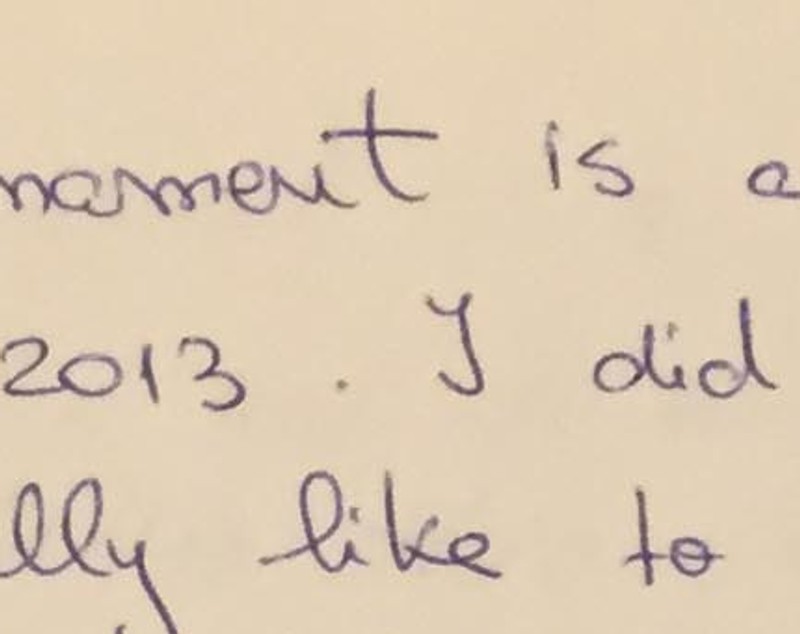 nament is a
2013. I did
lly like to